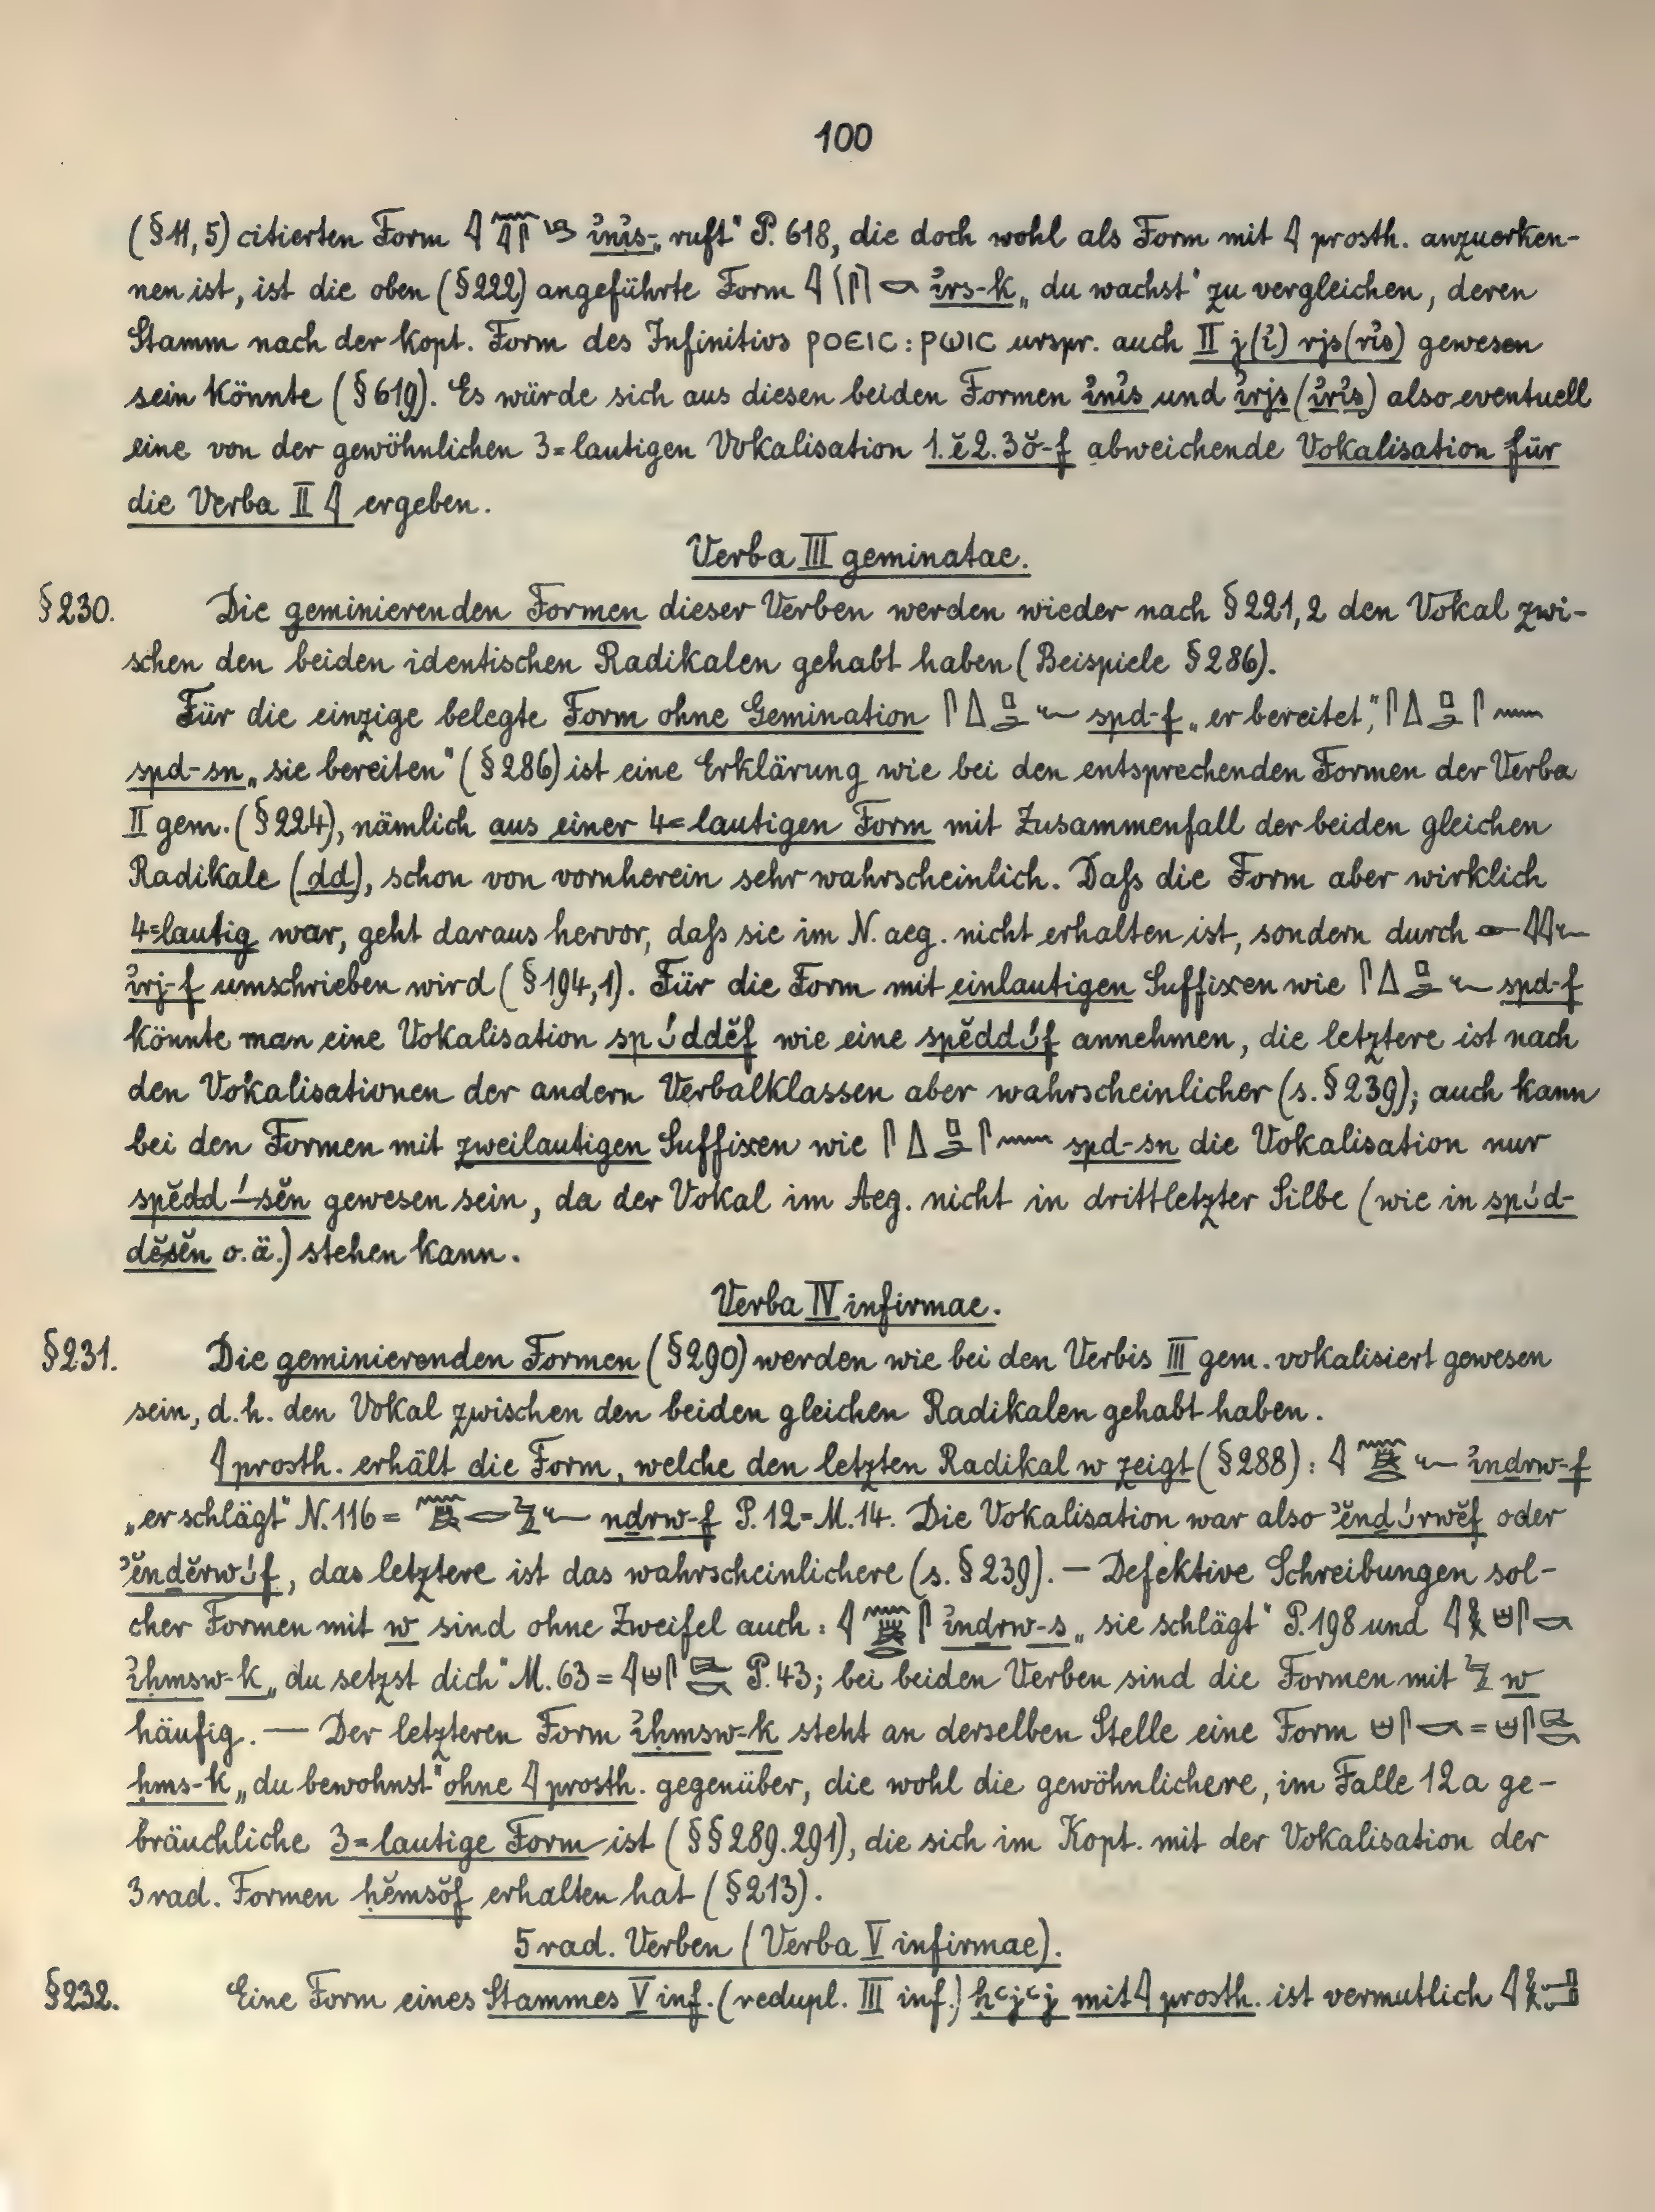 100
(§11,5) citierten Form 𓇋 ỉnỉs- „ruft“ P. 618, die doch wohl als Form mit 𓇋 prosth. anzuerken-
nen ist, ist die oben (§222) angeführte Form 𓇋 ỉrs-k „du wachst“ zu vergleichen, deren
Stamm nach der kopt. Form des Infinitivs ⲣⲟⲉⲓⲥ : ⲣⲱⲓⲥ urspr. auch II j (ỉ) rjs (rỉs) gewesen
sein könnte (§619). Es würde sich aus diesen beiden Formen ỉnỉs und ỉrjs (ỉrỉs) also eventuell
eine von der gewöhnlichen 3=lautigen Vokalisation 1.ĕ2.3ŏ-f abweichende Vokalisation für
die Verba II 𓇋 ergeben.
Verba III geminatae.
§230. Die geminierenden Formen dieser Verben werden wieder nach §221,2 den Vokal zwi-
schen den beiden identischen Radikalen gehabt haben (Beispiele §286).
Für die einzige belegte Form ohne Gemination 𓋴𓇮𓊪𓂧𓆑 spd-f „er bereitet“, 𓋴𓇮𓊪𓂧𓋴𓈖
spd-sn „sie bereiten“ (§286) ist eine Erklärung wie bei den entsprechenden Formen der Verba
II gem. (§224), nämlich aus einer 4=lautigen Form mit Zusammenfall der beiden gleichen
Radikale (dd), schon von vornherein sehr wahrscheinlich. Daß die Form aber wirklich
4=lautig war, geht daraus hervor, daß sie im N. aeg. nicht erhalten ist, sondern durch 𓁹𓇋𓇋𓆑
ỉrj-f umschrieben wird (§194,1). Für die Form mit einlautigen Suffixen wie 𓋴𓇮𓊪𓂧𓆑 spd-f
könnte man eine Vokalisation sp𝆩́ddĕf wie eine spĕdd𝆩́f annehmen, die letztere ist nach
den Vokalisationen der andern Verbalklassen aber wahrscheinlicher (s. §239); auch kann
bei den Formen mit zweilautigen Suffixen wie 𓋴𓇮𓊪𓂧𓋴𓈖 spd-sn die Vokalisation nur
spĕdd–́sĕn gewesen sein, da der Vokal im Aeg. nicht in drittletzter Silbe (wie in sp𝆩́d-
dĕsĕn o.ä.) stehen kann.
Verba IV infirmae.
§231. Die geminierenden Formen (§290) werden wie bei den Verbis III gem. vokalisiert gewesen
sein, d.h. den Vokal zwischen den beiden gleichen Radikalen gehabt haben.
𓇋 prosth. erhält die Form, welche den letzten Radikal w zeigt (§288): 𓇋 ỉnḏrw-f
„er schlägt“ N. 116 = nḏrw-f P. 12 = M. 14. Die Vokalisation war also ʾĕnḏ𝆩́rwĕf oder
ʾĕnḏĕrw𝆩́f, das letztere ist das wahrscheinlichere (s. §239). — Defektive Schreibungen sol-
cher Formen mit w sind ohne Zweifel auch: 𓇋 ỉnḏrw-s „sie schlägt“ P. 198 und 𓇋
ỉḥmsw-k „du setzst dich“ M. 63 = 𓇋 P. 43; bei beiden Verben sind die Formen mit 𓅱 w
häufig. — Der letzteren Form ỉḥmsw-k steht an derselben Stelle eine Form =
ḥms-k „du bewohnst“ ohne 𓇋 prosth. gegenüber, die wohl die gewöhnlichere, im Falle 12a ge-
bräuchliche 3=lautige Form ist (§§289.291), die sich im Kopt. mit der Vokalisation der
3rad. Formen ḥĕmsŏf erhalten hat (§213).
5rad. Verben (Verba V infirmae).
§232. Eine Form eines Stammes V inf. (redupl. III inf.) ḥꜥjꜥj mit 𓇋 prosth. ist vermutlich 𓇋